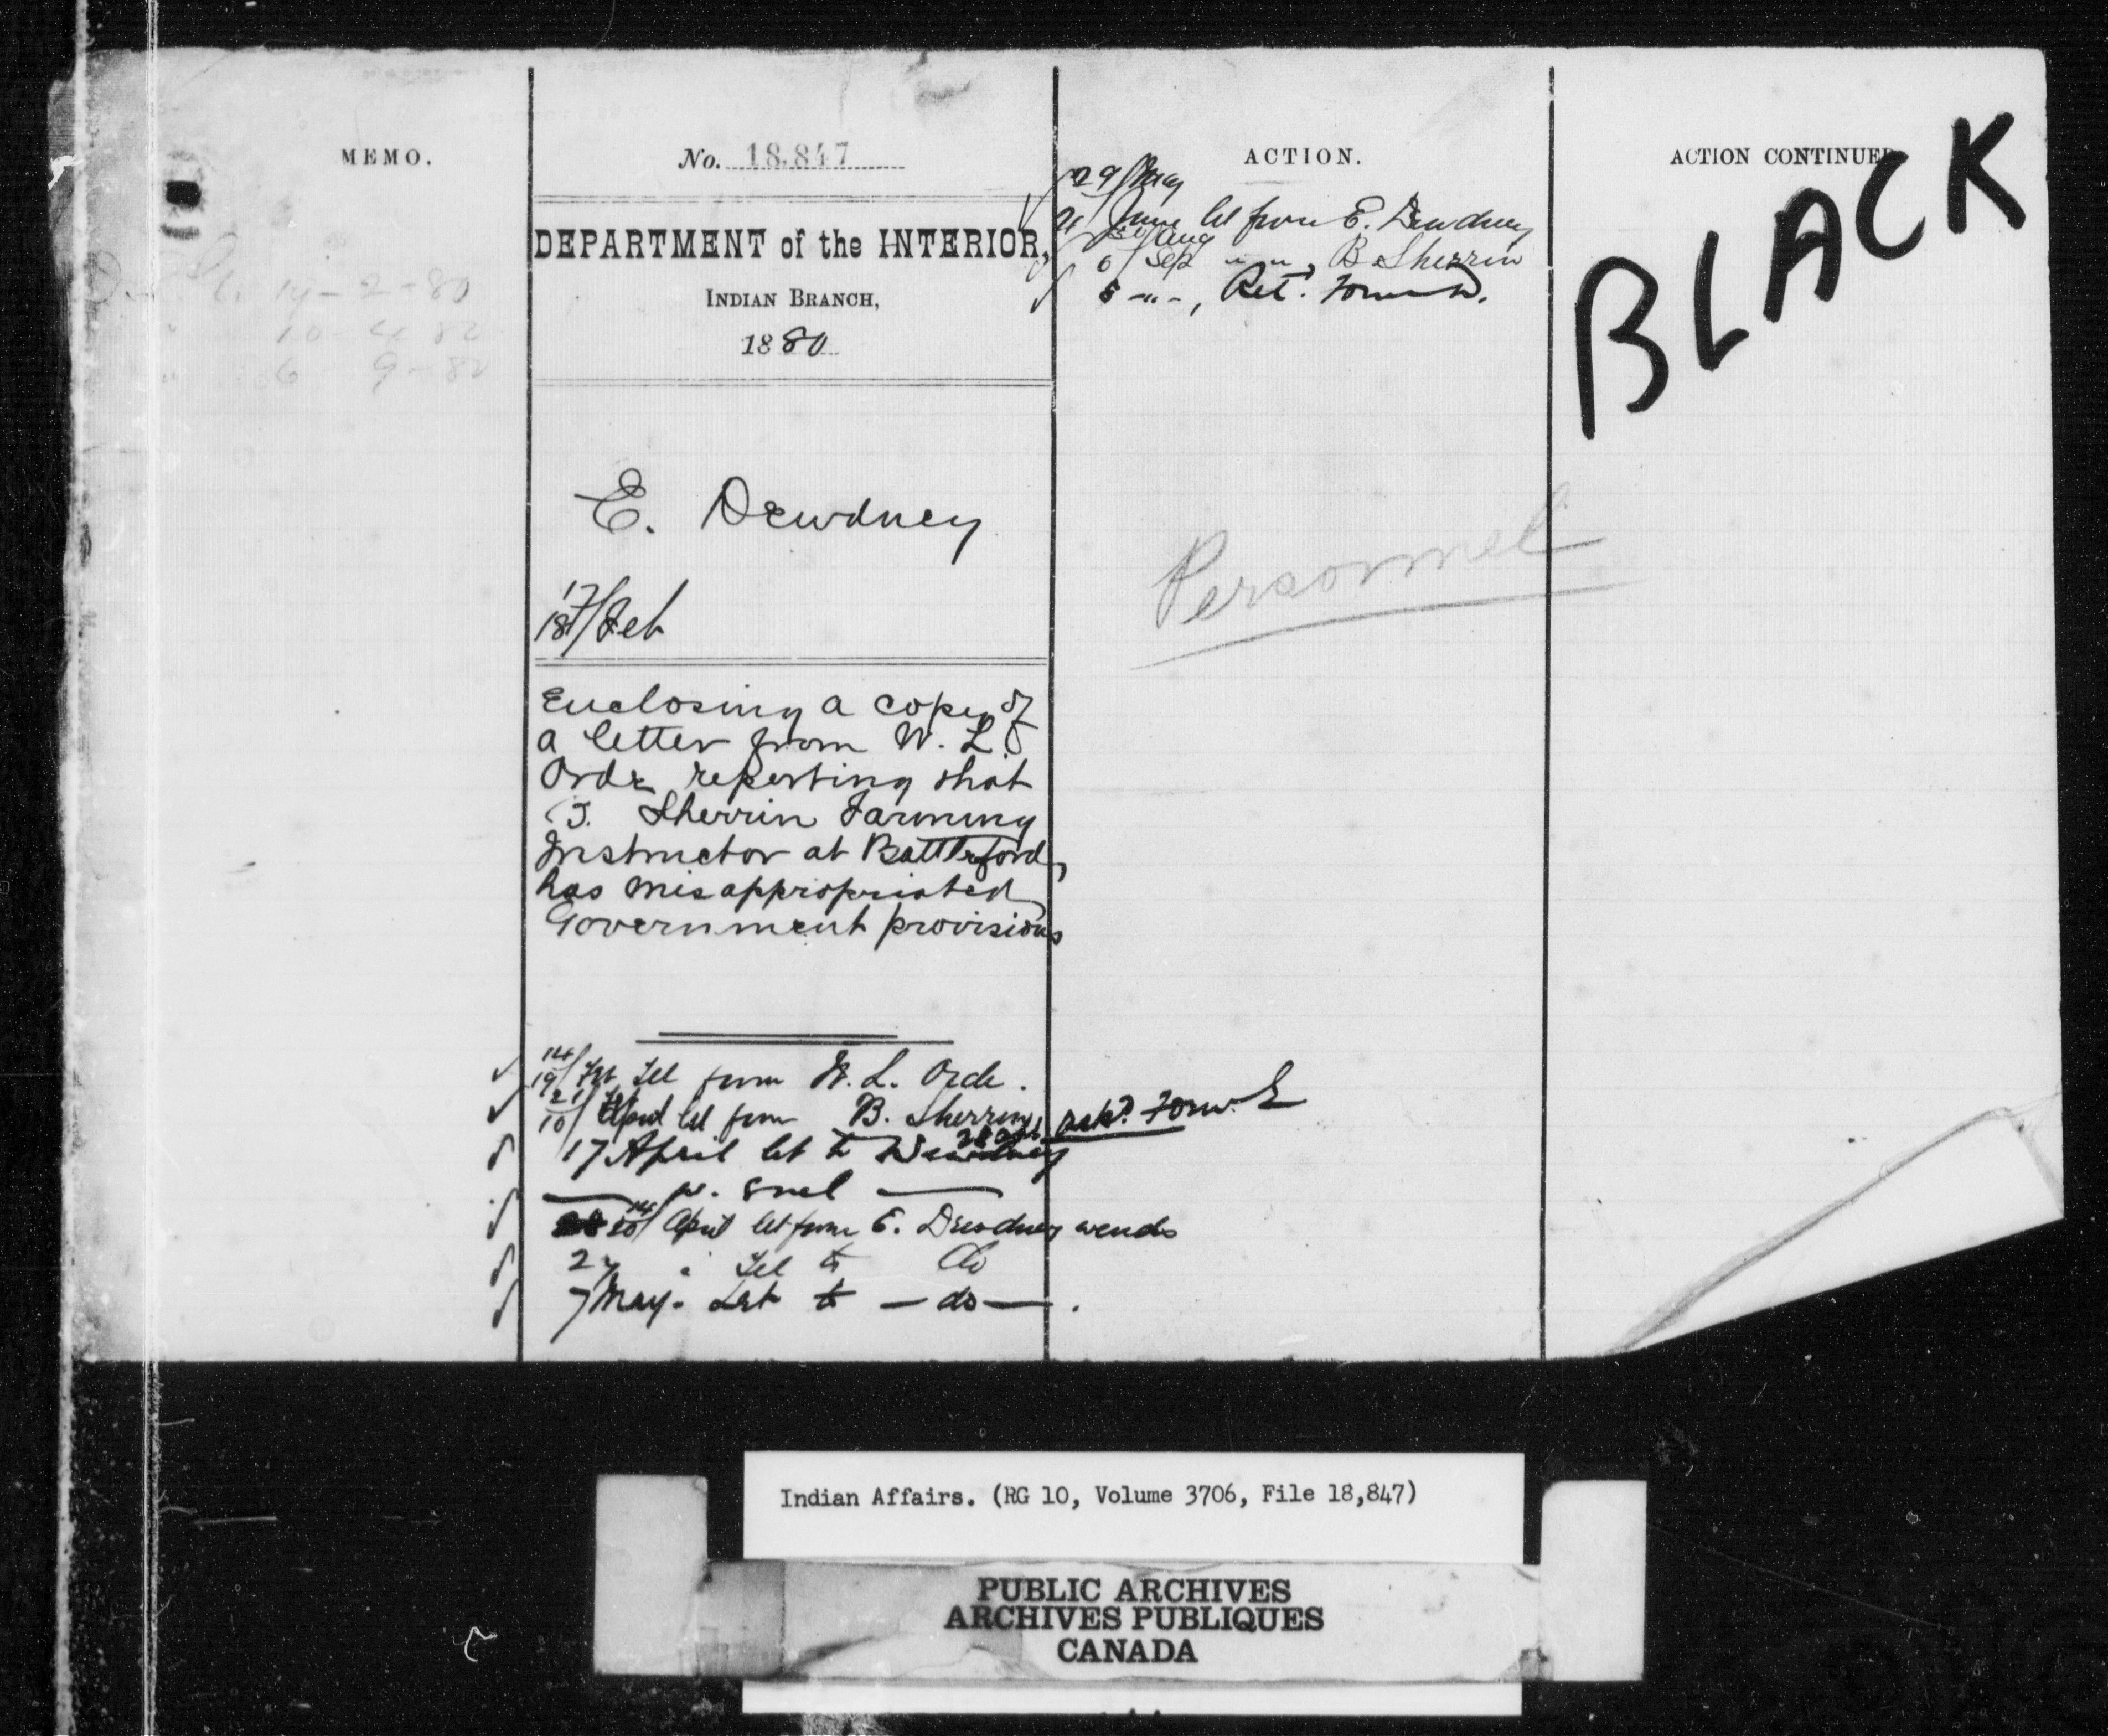 MEMO.
14-2-80
10-4-80
6 9-80
No. 18.847
DEPARTMENT of the INTERIOR,
INDIAN BRANCH,
1880
E. Dewdney
17/18/Feb
Enclosing a copy of
a letter from W. L.
Orde reporting that
J. Sherrin Farming
Instructor at Battleford,
has misappropriated
Government provisions
14/19/Feb Tel from W. L. Orde.
21/10/April let from B. Sherrin ack? Form E
17 April let to Dewdney
20/April let from E. Dewdney
27 " Tel to Do
7 May. Let to -do-.
ACTION.
29/May
June let from E. Dewdney
30/Aug
6/Sep " " , B. Sherrin
5 -"-, Ret.
Personnel
ACTION CONTINUED
BLACK
Indian Affairs. (RG 10, Volume 3706, File 18,847)
PUBLIC ARCHIVES
ARCHIVES PUBLIQUES
CANADA